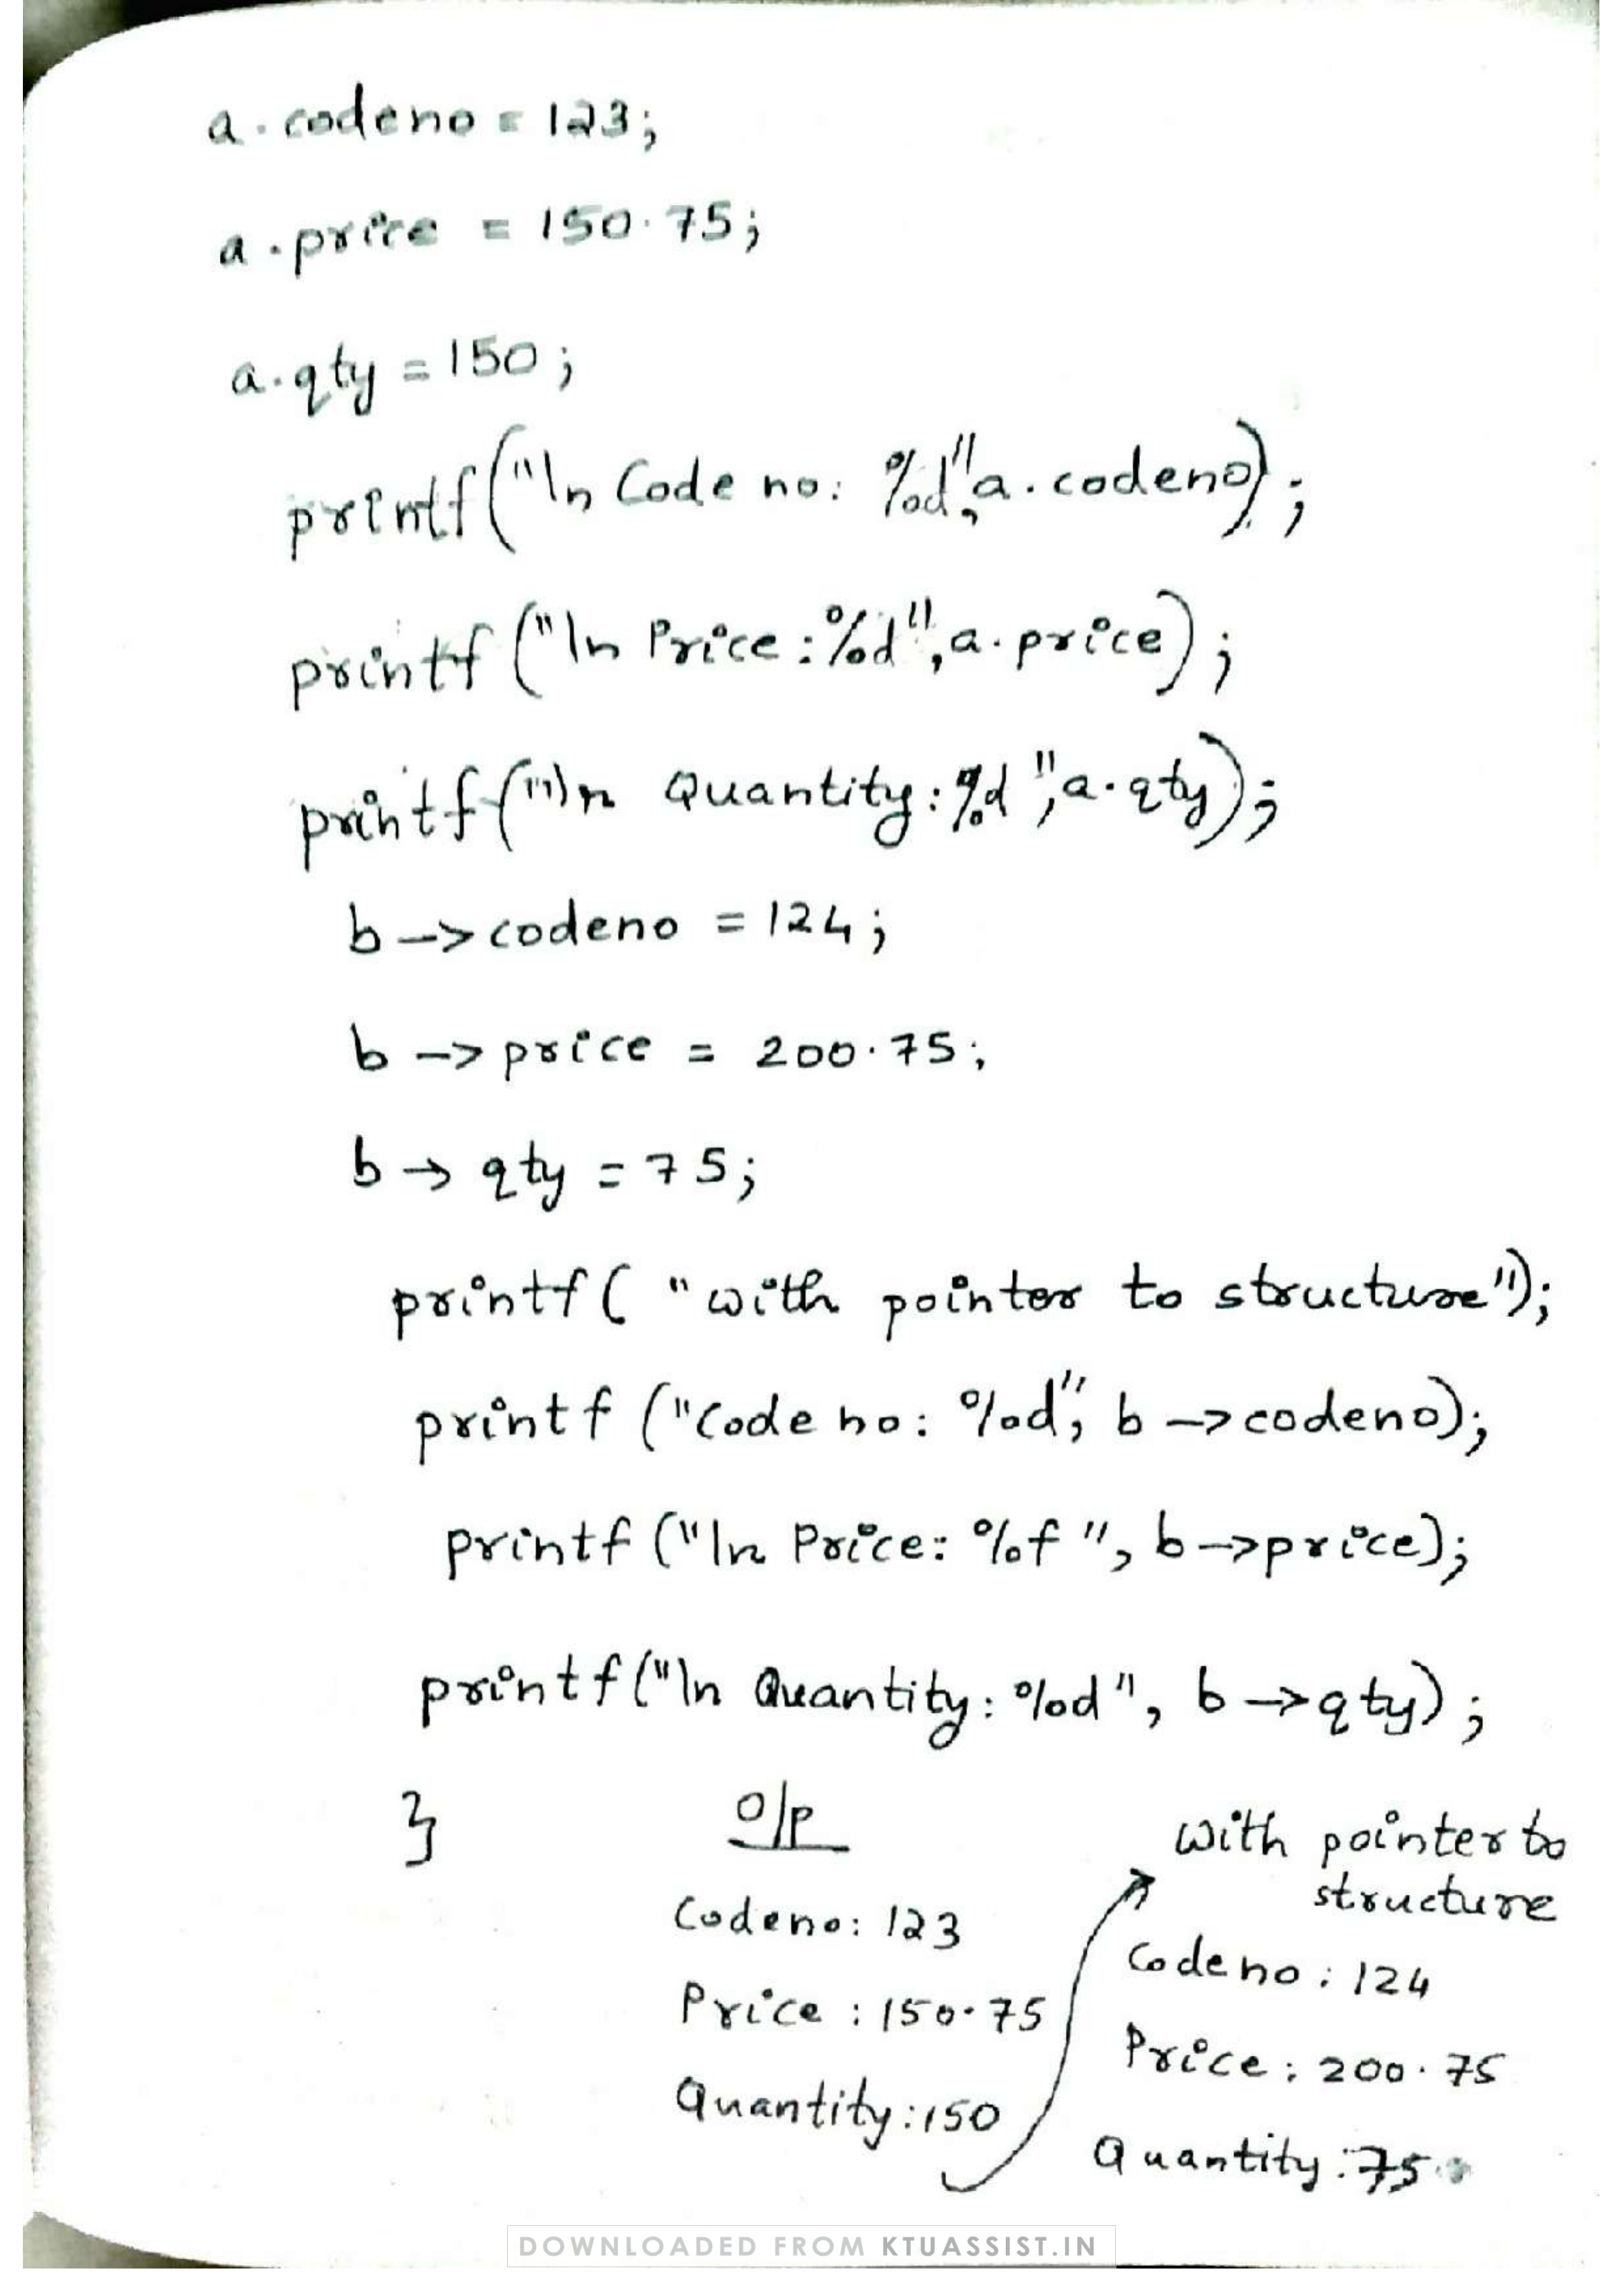 a.codeno = 123;
a.price = 150.75;
a.qty = 150;
printf("\n Code no: %d",a.codeno);
printf("\n Price:%d",a.price);
printf("\n Quantity:%d",a.qty);
b->codeno = 124;
b->price = 200.75;
b->qty = 75;
printf("with pointer to structure");
printf("Code no: %d", b->codeno);
printf("\n Price: %f", b->price);
printf("\n Quantity: %d", b->qty);
}
o/p
Codeno: 123
Price : 150.75
Quantity:150
with pointer to
structure
Codeno: 124
Price: 200.75
Quantity:75
DOWNLOADED FROM KTUASSIST.IN